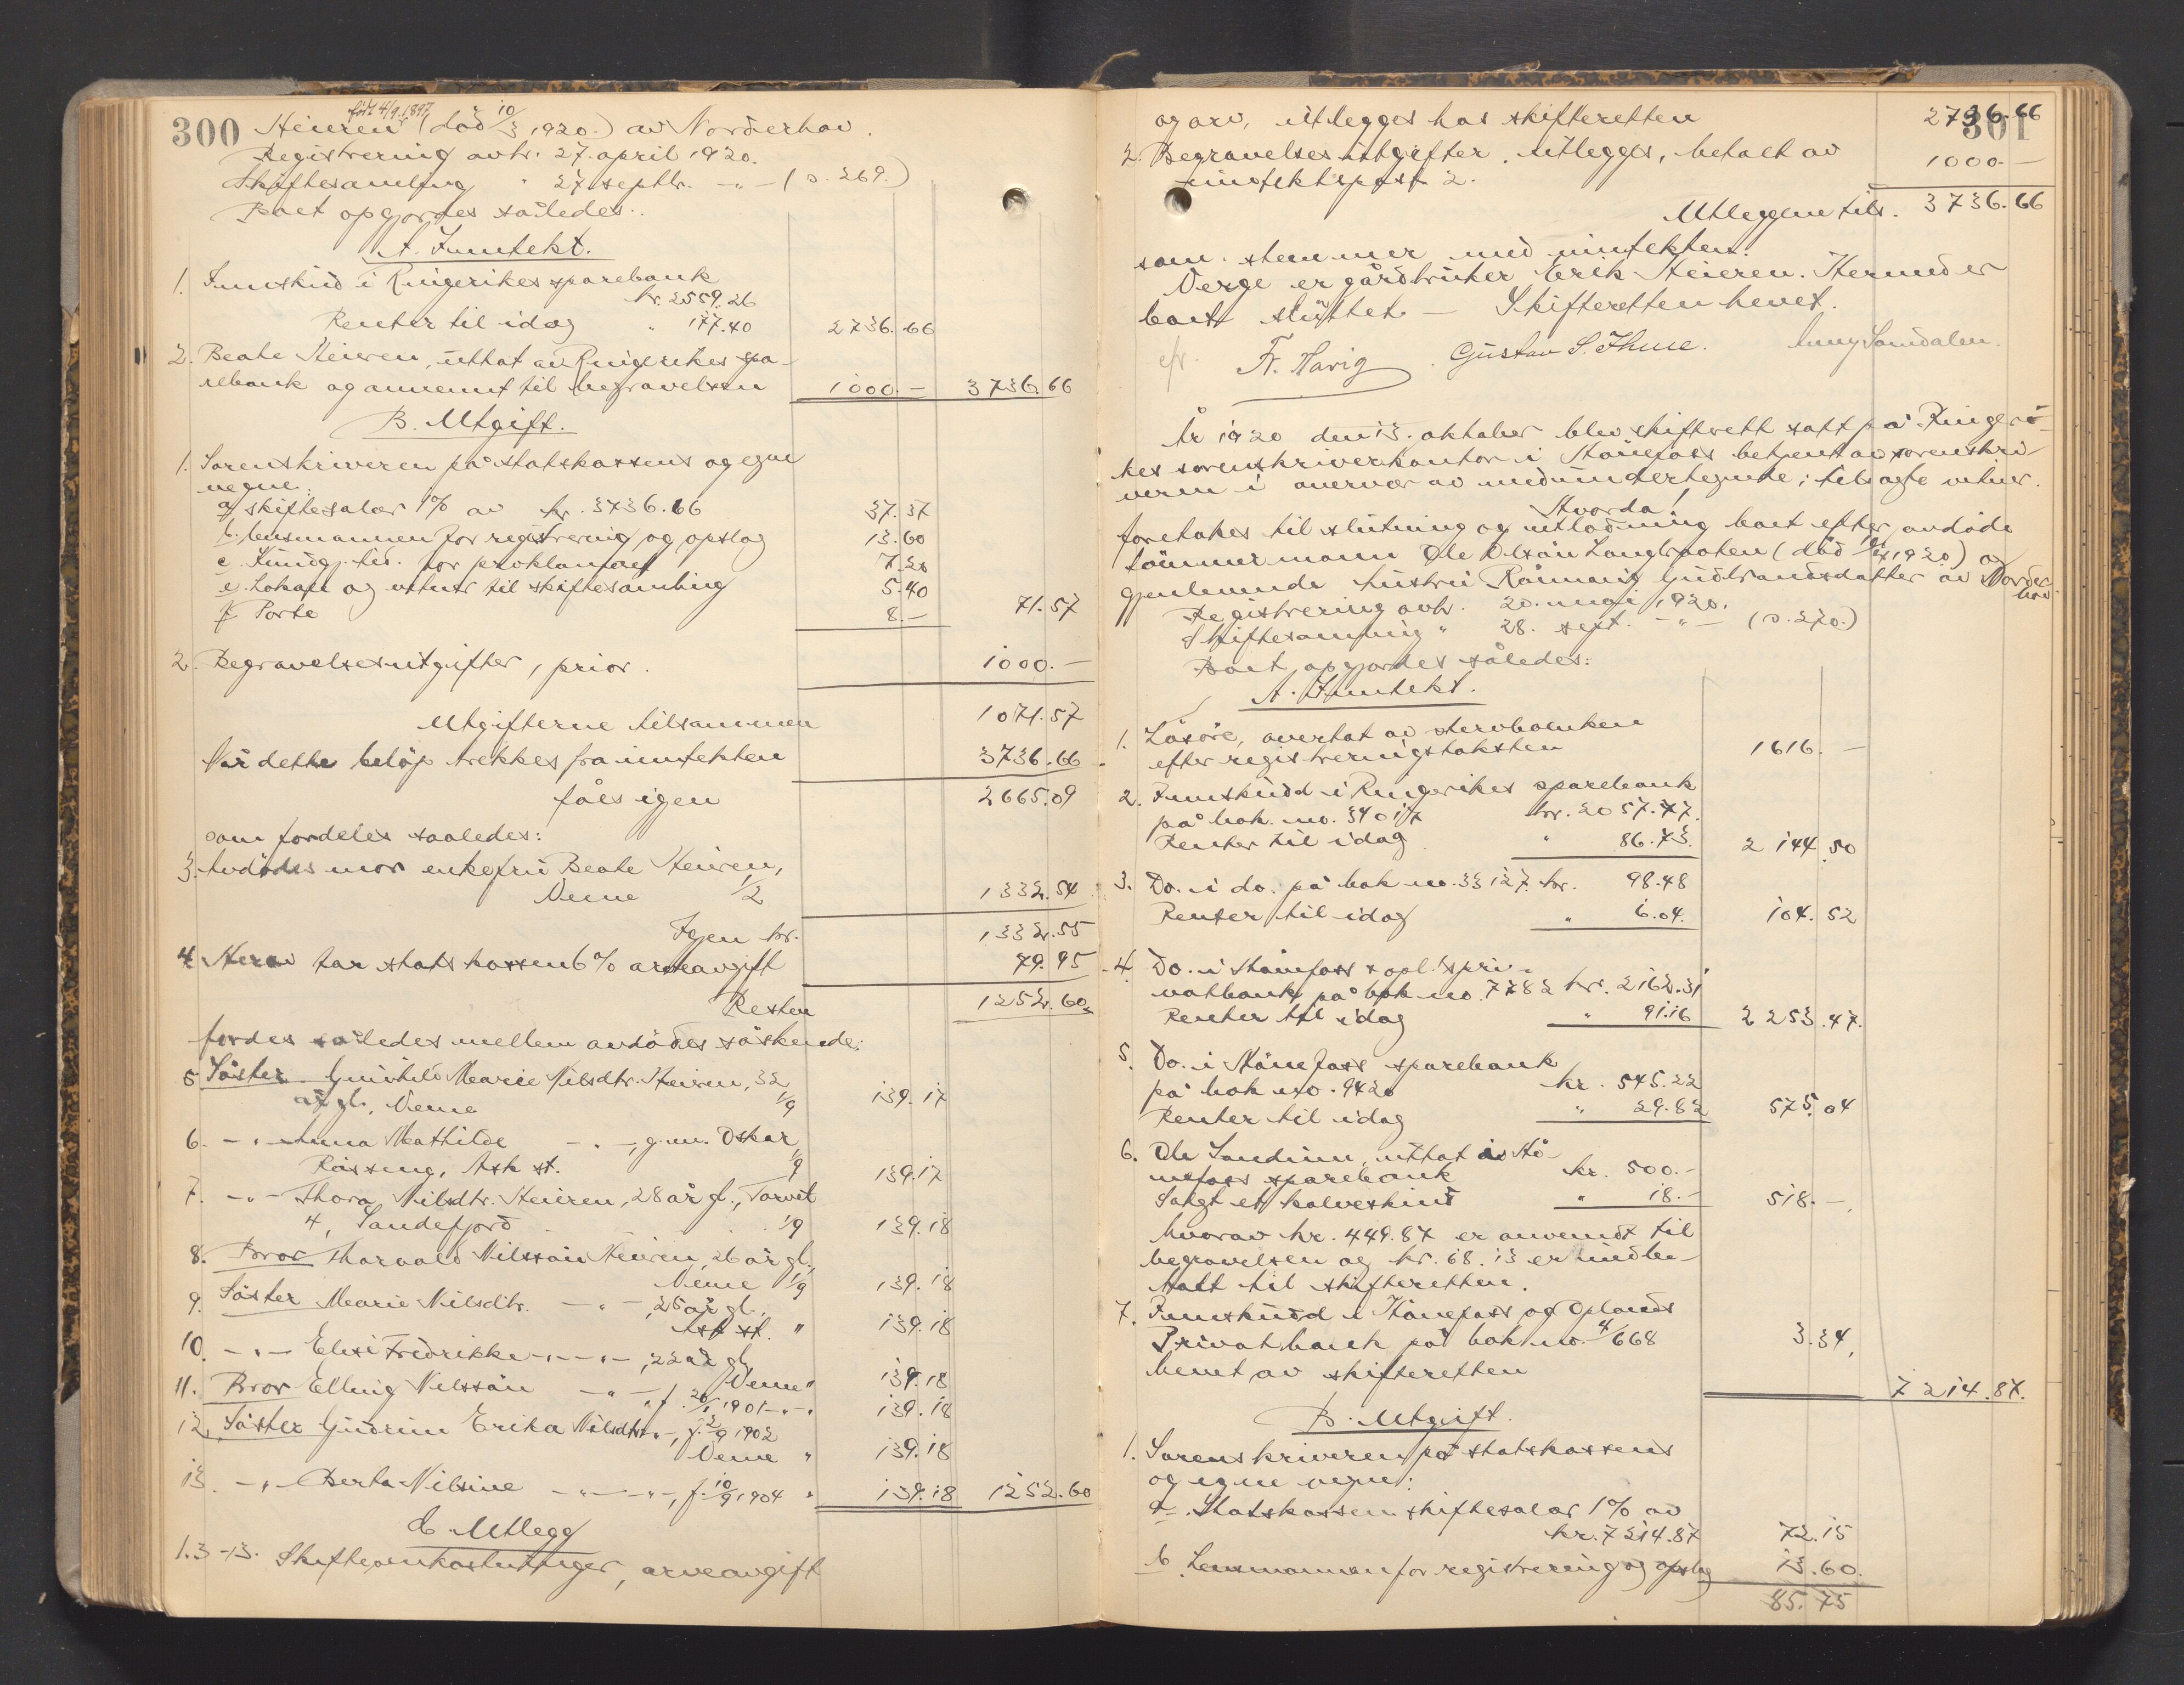 300
født 4/9.1897
Heieren (død 10/3 1920.) av Norderhov.
Registrering avh. 27. april 1920.
Skiftesamling " 27 septbr. -"- (s. 269.)
Boet opgjordes således:
A. Inntekt.
1. Innskud i Ringerikes sparebank
kr. 2559.26
Renter til idag " 177.40 2736.66
2. Beate Heieren, uttat av Ringerikes spa-
rebank og anvennt til begravelsen 1000.- 3736.66
B. Utgift.
1. Sorenskriveren på statskassens og egne
vegne:
a skiftesalær 1% av kr. 3736.66 37.37
b. lensmannen for registrering og opslag 13.60
c. Kundg. tid. for proklamaet 7.20
e. Lokale og vitner til skiftesamling 5.40
f Porto 8.- 71.57
2. Begravelsesutgifter, prior. 1000.-
Utgifterne tilsammen 1071.57
Når dette beløp trekkes fra inntekten 3736.66
fåes igjen 2665.09
som fordeles saaledes:
3. Avdødes mor enkefru Beate Heieren,
Veme 1/2 1332.54
Igjen kr. 1332.55
4. Herav tar statskassen 6% arveavgift 79.95
Resten 1252.60
fordes således mellem avdødes søskende:
5 Søster Gunhild Marie Nilsdtr. Heieren, 32
år gl., Veme 1/9 139.17
6. -"- Anna Mathilde -"-, g.m. Oskar
Røssing, Ask st. 1/9 139.17
7. -"- Thora Nilsdtr. Heieren, 28 år gl., Torvet
4, Sandefjord 1/9 139.18
8. Bror Thorvald Nilssøn Heieren, 26 år gl.,
Veme 1/9 139.18
9. Søster Marie Nilsdtr. -"-, 25 år gl.,
Ask st. " 139.18
10. -"- Elise Fredrikke -"-"-, 22 år gl,
Veme " 139.18
11. Bror Elling Nilssøn -"- f. 20/1 1901 -"- " 139.18
12. Søster Gudrun Erika Nilsdtr. -"-, f. 12/9 1902
Veme " 139.18
13. -"- Berta Nilsine -"-"-, f. 10/9 1904 " 139.18 1252.60
C. Utlegg
1. 3-13. Skifteomkostninger, arveavgift
301
og arv, utlegges hos skifteretten 2736.66
2. Begravelsesutgifter, utlegges, betalt av
inntektspost 2. 1000.-
Utleggene tils. 3736.66
som stemmer med inntekten.
Verge er gårdbruker Erik Heieren. Hermed er
boet sluttet. - Skifteretten hevet.
Fr. Harig Gustav S. Thue.
År 1920 den 13. oktober blev skifterett satt på Ringeri-
kes sorenskriverkontor i Hønefoss betjent av sorenskri-
veren i overvær av medundertegnede, tilsagte vitner.
Hvorda!
foretokes til slutning og utlodning boet efter avdøde
tømmermann Ole Olsøn Langbraaten (død 1920) og
gjenlevende hustru Rønnaug Gudbrandsdatter av Norder-
hov
Registrering avh. 20. mai 1920.
Skiftesamling " 28. sept. -"- (s. 270.)
Boet opgjordes således:
A. Inntekt.
1. Løsøre, overtat av stervboenken
efter registreringstaksten 1616.-
2. Innskudd i Ringerikes sparebank
på bok no. 34017 kr. 2057.77.
Renter til idag " 86.73. 2144.50
3. Do. i do. på bok no. 33127 kr. 98.48
Renter til idag " 6.04. 104.52
4. Do. i Hønefoss & opl.'s pri-
vatbank på bok no. 7782 kr. 2162.31
Renter til idag " 91.16 2253.47.
5. Do. i Hønefoss sparebank
på bok no. 9420 kr. 545.22
Renter til idag " 29.82 575.04
6. Ole Sandum, uttat av Hø-
nefoss sparebank kr. 500.-
Solgt et kalveskind " 18.- 518.-
hvorav kr. 449.87 er anvendt til
begravelsen og kr. 68.13 er indbe-
talt til skifteretten.
7. Innskudd i Hønefoss og Oplands
Privatbank på bok no. 4/668 3.34,
hevet av skifteretten
7214.87.
B. Utgift.
1. Sorenskriveren på statskassens
og egne vegne:
a. Statskassen skiftesalær 1% av
kr. 7214.87 72.15
b. Lensmannen for registrering og opslag 13.60.
85.75